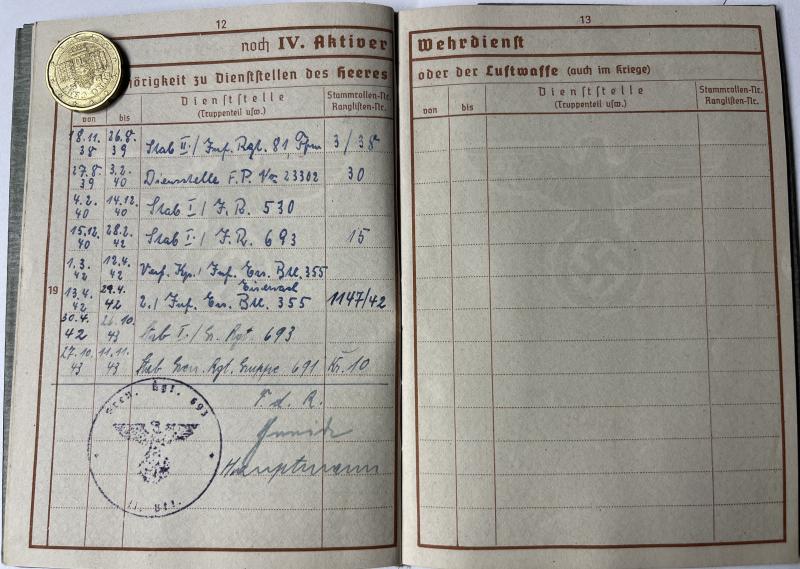 12
noch IV. Aktiver
örigkeit zu Dienststellen des Heeres
von bis
Dienststelle
(Truppenteil usw.)
Stammrollen-Nr.
Ranglisten-Nr.
18.11. 38 26.8. 39 Stab II./ Inf. Rgt. 81, Ffm 3/38
27.8 39 3.2. 40 Dienststelle F.P. No 23302 30
4.2. 40 14.12. 40 Stab I/ J.R. 530
15.12. 40 28.2. 42 Stab I/ J.R. 693 15
1.3. 42 12.4. 42 Verf. Kp./ Inf. Ers. Btl. 355
Eisenach
19 13.4. 42 29.4. 42 2./ Inf. Ers. Btl. 355 1147/42
30.4. 42 26.10. 43 Stab I./ Gr. Rgt. 693
27.10. 43 11.11. 43 Stab Gren. Rgt. Gruppe 691 Kr. 10
F. d. R.
Hauptmann
Gren. Rgt. 693
Btl.
13
Wehrdienst
oder der Luftwaffe (auch im Kriege)
von bis
Dienststelle
(Truppenteil usw.)
Stammrollen-Nr.
Ranglisten-Nr.